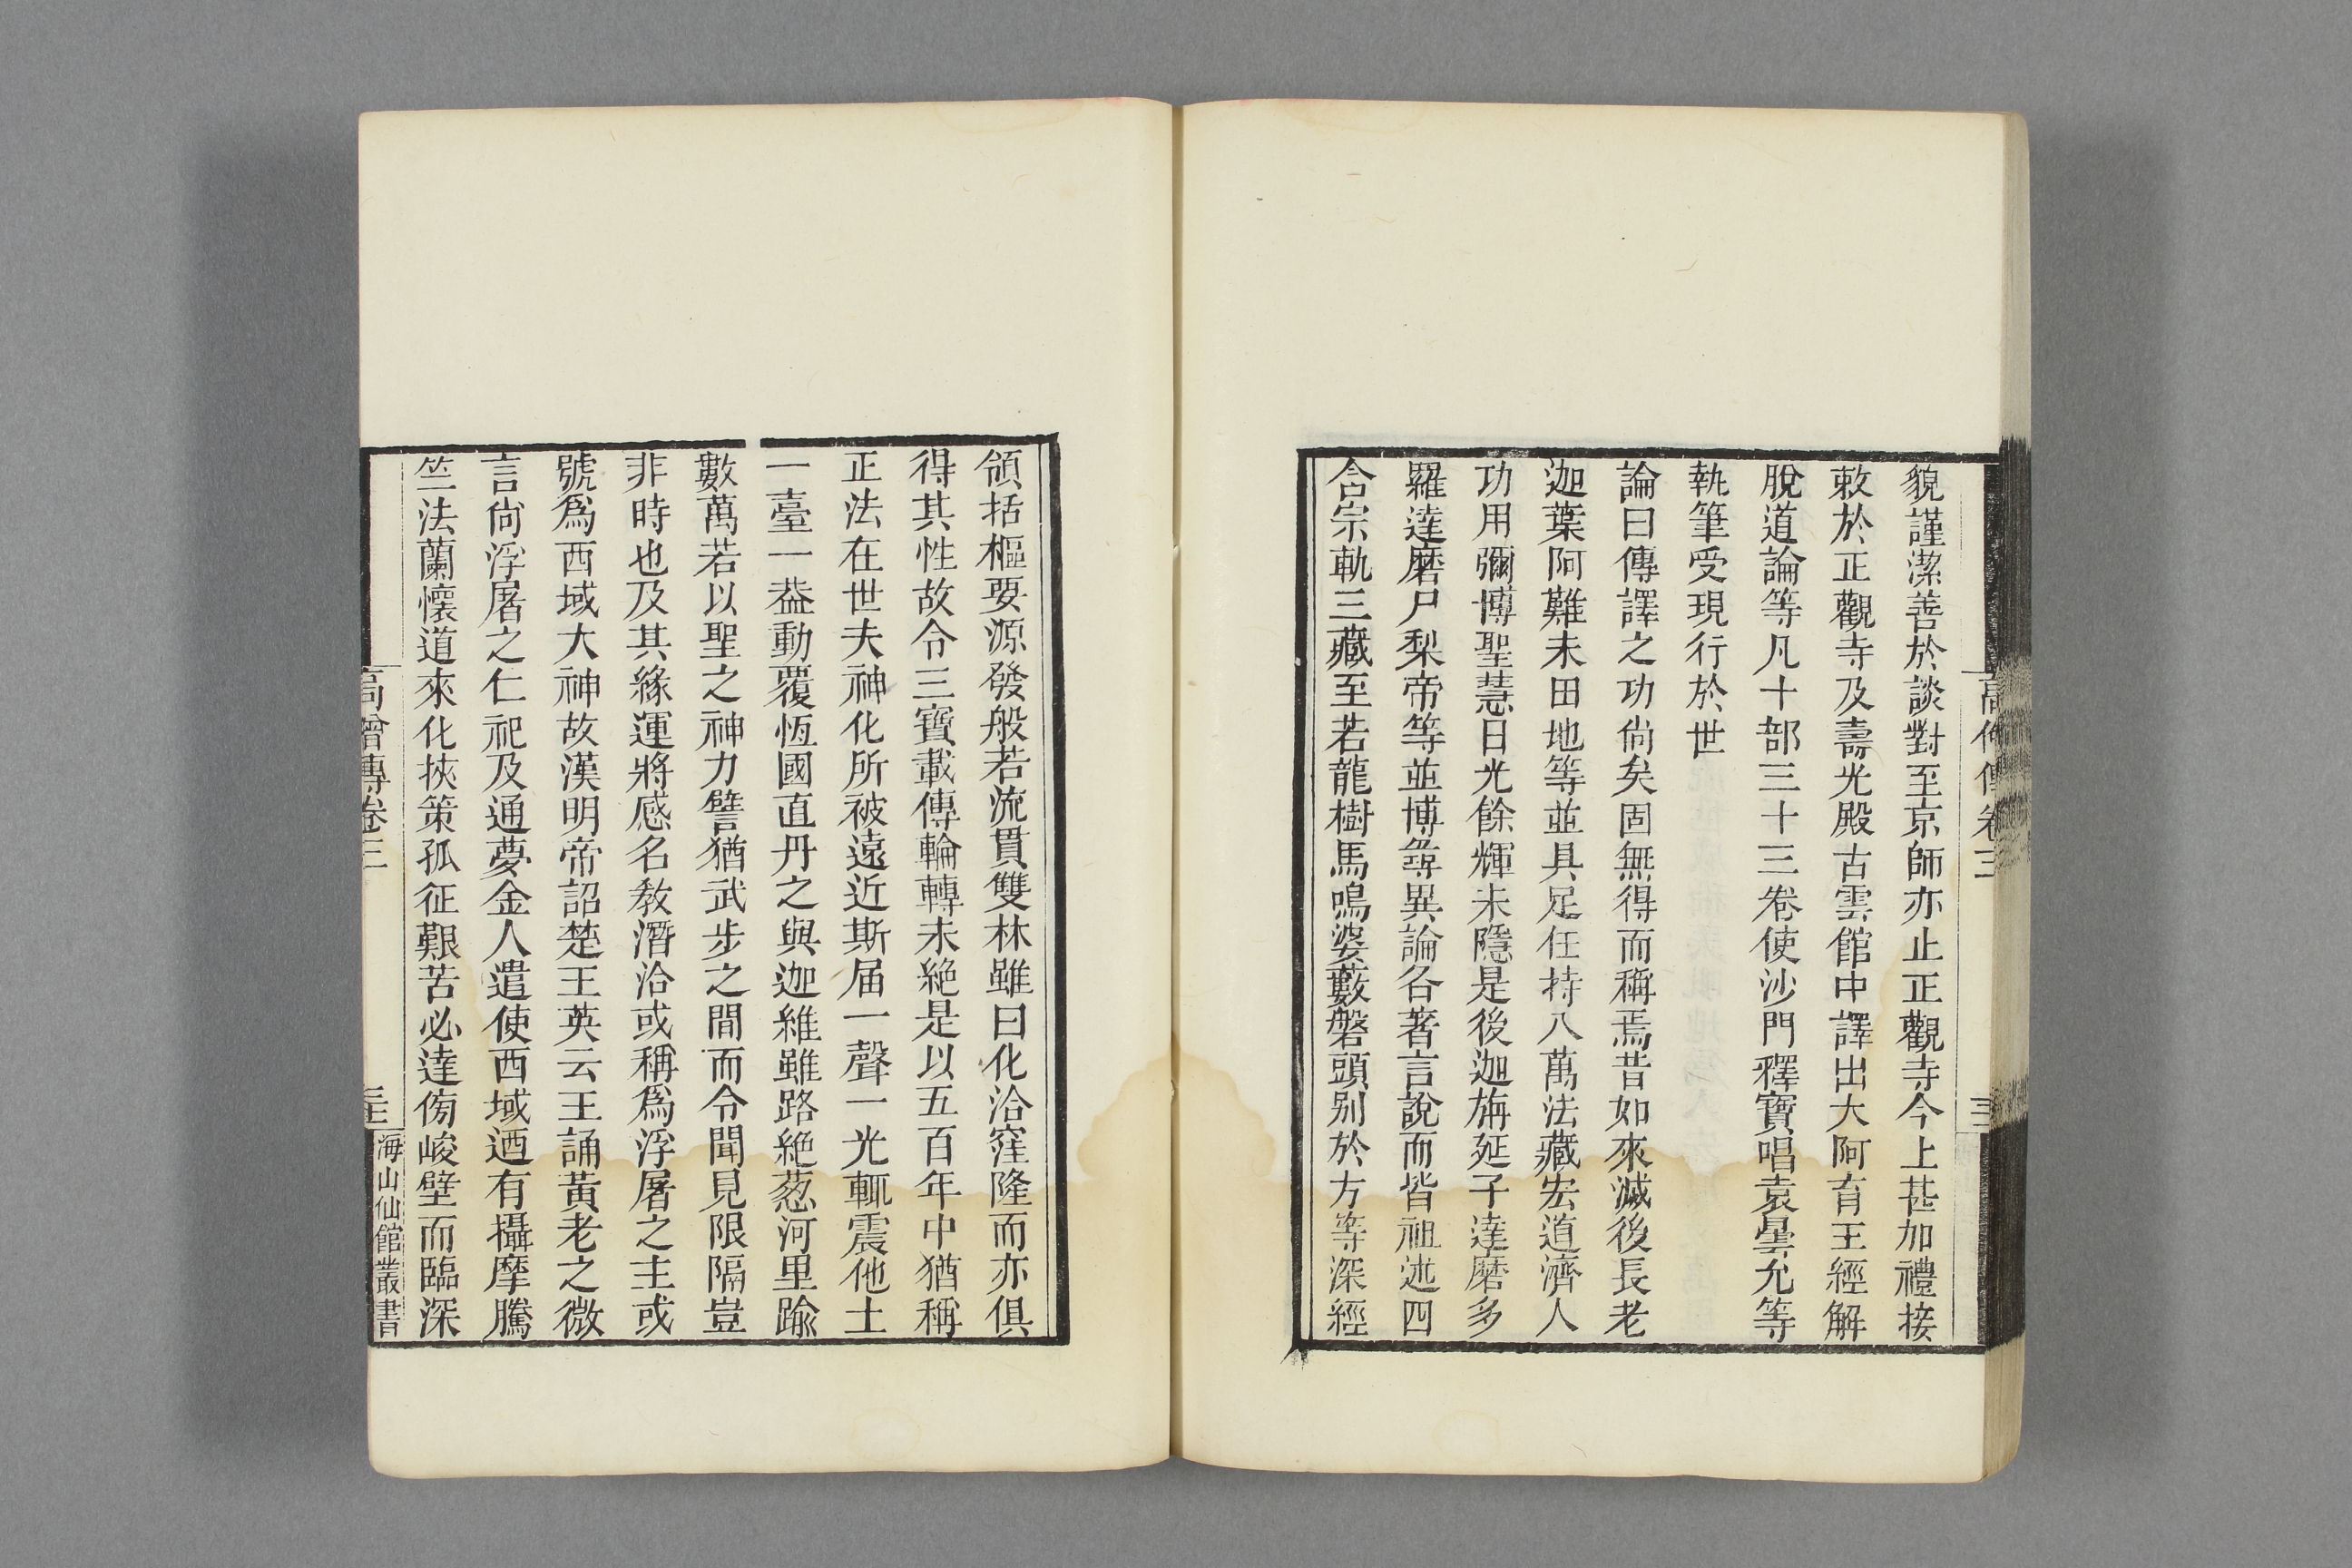 貌謹潔善於談對至京師亦止正觀寺今上甚加禮接
敕於正觀寺及壽光殿古雲館中譯出大阿育王經解
脫道論等凡十部三十三卷使沙門釋寶唱袁曇允等
執筆受現行於世
論曰傳譯之功尙矣固無得而稱焉昔如來滅後長老
迦葉阿難末田地等並具足任持八萬法藏宏道濟人
功用彌博聖慧日光餘輝未隱是後迦旃延子達磨多
羅達磨尸梨帝等並博尋異論各著言說而皆祖述四
含宗軌三藏至若龍樹馬鳴婆藪磐頭别於方等深經
領括樞要源發般若流貫雙林雖曰化洽窪隆而亦俱
得其性故令三寶載傳輪轉未絶是以五百年中猶稱
正法在世夫神化所被遠近斯届一聲一光輒震他土
一臺一葢動覆恆國直丹之與迦維雖路絶葱河里踰
數萬若以聖之神力譬猶武步之間而令聞見限隔豈
非時也及其緣運將感名敎潛洽或稱爲浮屠之主或
號爲西域大神故漢明帝詔楚王英云王誦黃老之微
言尙浮屠之仁祀及通夢金人遣使西域迺有攝摩騰
竺法蘭懷道來化挾策孤征艱苦必達傍峻壁而臨深
高僧傳卷三
海山仙館叢書